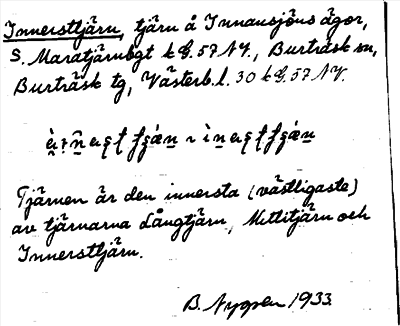 Innersttjärn, tjärn å Innansjöns ägor,
S. Maratjärnbgt k G.57 NV., Burträsk sn,
Burträsk tg, Västerb.l. 30 k G.57 NV.
Tjärnen är den innersta (västligaste)
av tjärnarna Långtjärn, Mittitjärn och
Innersttjärn.
B. 1933.